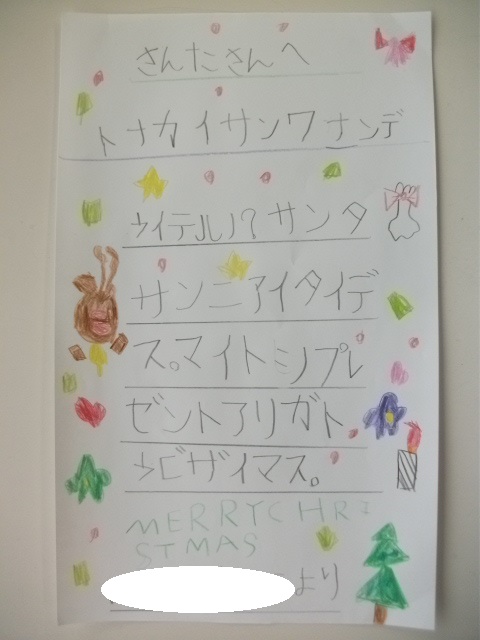 さんたさんへ
トナカイサンワナンデ
ウイテルノ?サンタ
サンニアイタイデ
ス。マイトシプレ
ゼントアリガト
ウゴザイマス。
MERRYCHRI
STMAS
より